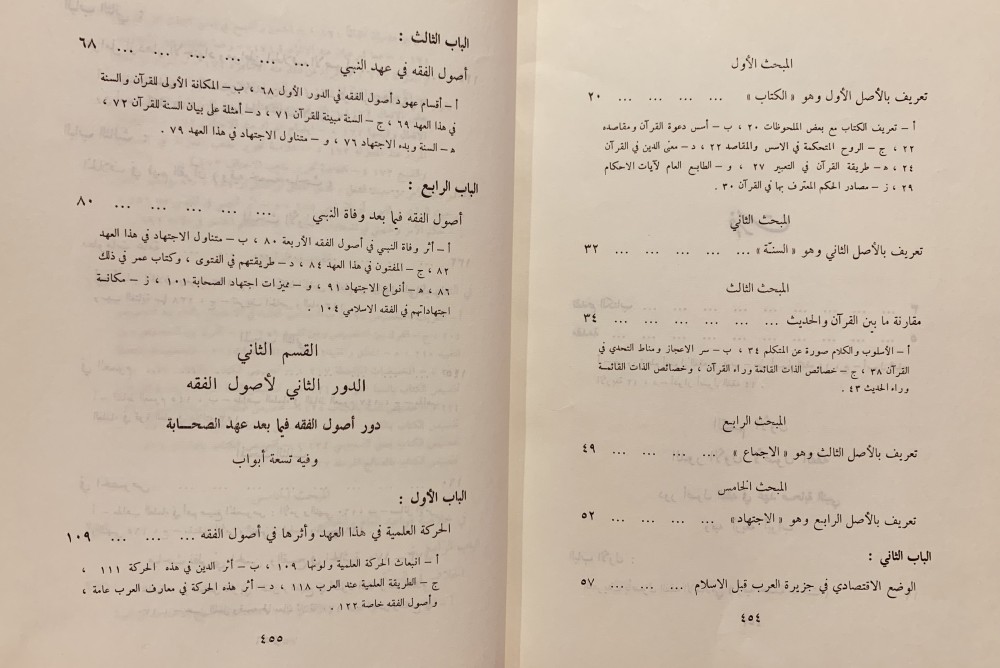 المبحث الأول
تعريف بالأصل الأول وهو « الكتاب » ... ... ... ... ٢٠
أ – تعريف الكتاب مع بعض الملحوظات ٢٠ ، ب – أسس دعوة القرآن ومقاصده
٢٢ ، ج – الروح المتحكمة في الاسس والمقاصد ٢٢ ، د – معنى الدين في القرآن
٢٤ ، ه – طريقة القرآن في التعبير ٢٧ ، و – الطابع العام لآيات الاحكام
٢٩ ، ز – مصادر الحكم المعترف بها في القرآن ٣٠ .
المبحث الثاني
تعريف بالأصل الثاني وهو « السنّة » ... ... ... ... ... ٣٢
المبحث الثالث
مقارنة ما بين القرآن والحديث ... ... ... ... ... ... ٣٤
أ – الأسلوب والكلام صورة عن المتكلم ٣٤ ، ب – سر الاعجاز ومناط التحدي في
القرآن ٣٨ ، ج – خصائص الذات القائمة وراء القرآن ، وخصائص الذات القائمسة
وراء الحديث ٤٣ .
المبحث الرابع
تعريف بالأصل الثالث وهو « الاجماع » ... ... ... ... ٤٩
المبحث الخامس
تعريف بالأصل الرابع وهو « الاجتهاد » ... ... ... ... ٥٢
الباب الثاني :
الوضع الاقتصادي في جزيرة العرب قبل الاسلام ... ... ... ٥٧
٤٥٤
الباب الثالث :
أصول الفقه في عهد النبي ... ... ... ... ... ... ٦٨
أ – أقسام عهود أصول الفقه في الدور الأول ٦٨ ، ب – المكانة الأولى للقرآن والسنة
في هذا العهد ٦٩ ، ج – السنة مبينة للقرآن ٧١ ، د – أمثلة على بيان السنة للقرآن ٧٢ ،
ه – السنة وبدء الاجتهاد ٧٦ ، و – متناول الاجتهاد في هذا العهد ٧٩ .
الباب الرابع :
أصول الفقه فيما بعد وفاة النبي ... ... ... ... ... ... ٨٠
أ – أثر وفاة النبي في أصول الفقه الأربعة ٨٠ ، ب – متناول الاجتهاد في هذا العهد
٨٢ ، ج – المفتون في هذا العهد ٨٤ ، د – طريقتهم في الفتوى ، وكتاب عمر في ذلك
٨٦ ، ه – أنواع الاجتهاد ٩١ ، و – مميزات اجتهاد الصحابة ١٠١ ، ز – مكانسة
اجتهاداتهم في الفقه الاسلامي ١٠٤ .
القسم الثاني
الدور الثاني لأصول الفقه
دور أصول الفقه فيما بعد عهد الصحـــابة
وفيه تسعة أبواب
الباب الأول :
الحركة العلمية في هذا العهد وأثرها في أصول الفقه ... ... ... ١٠٩
أ – انبعاث الحركة العلمية ولونها ١٠٩ ، ب – أثر الدين في هذه الحركة ١١١ ،
ج – الطريقة العلمية عند العرب ١١٨ ، د – أثر هذه الحركة في معارف العرب عامة ،
وأصول الفقه خاصة ١٢٢ .
٤٥٥